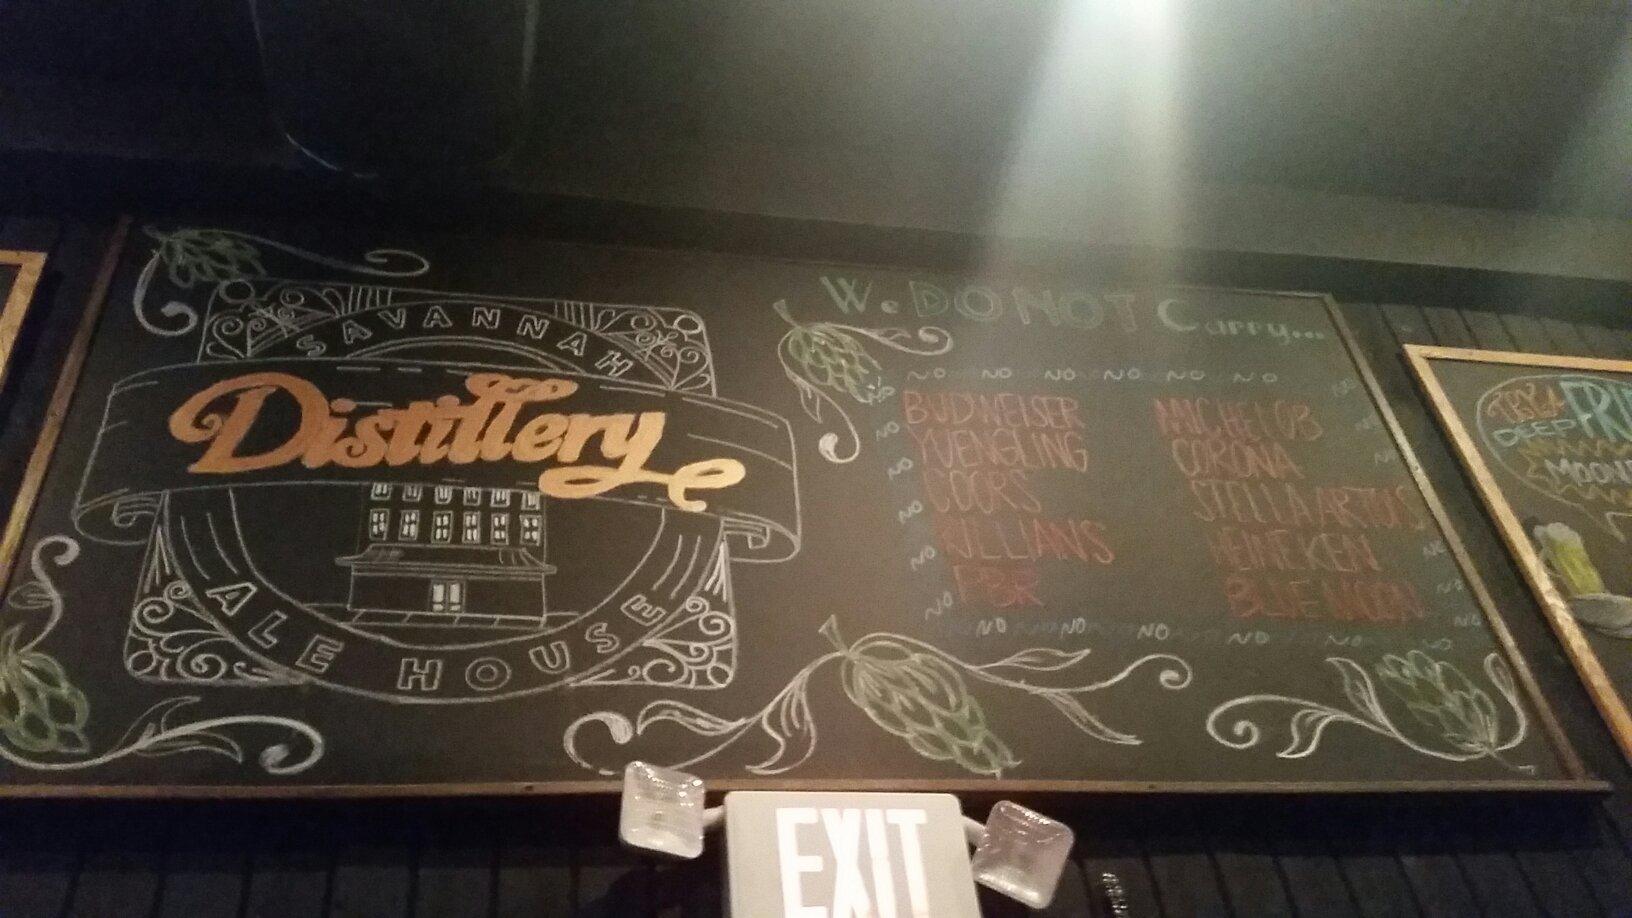 SAVANNAH
Distillery
ALE HOUSE
We DO NOT Carry...
NO NO NO NO NO NO
NO NO
BUDWEISER MICHELOB
NO NO
YUENGLING CORONA
NO NO
COORS STELLA ARTOIS
NO NO
KILLIANS HEINEKEN
NO NO
PBR BLUE MOON
NO NO
NO NO NO NO NO NO
TRY A
DEEP FRI
MOON
EXIT